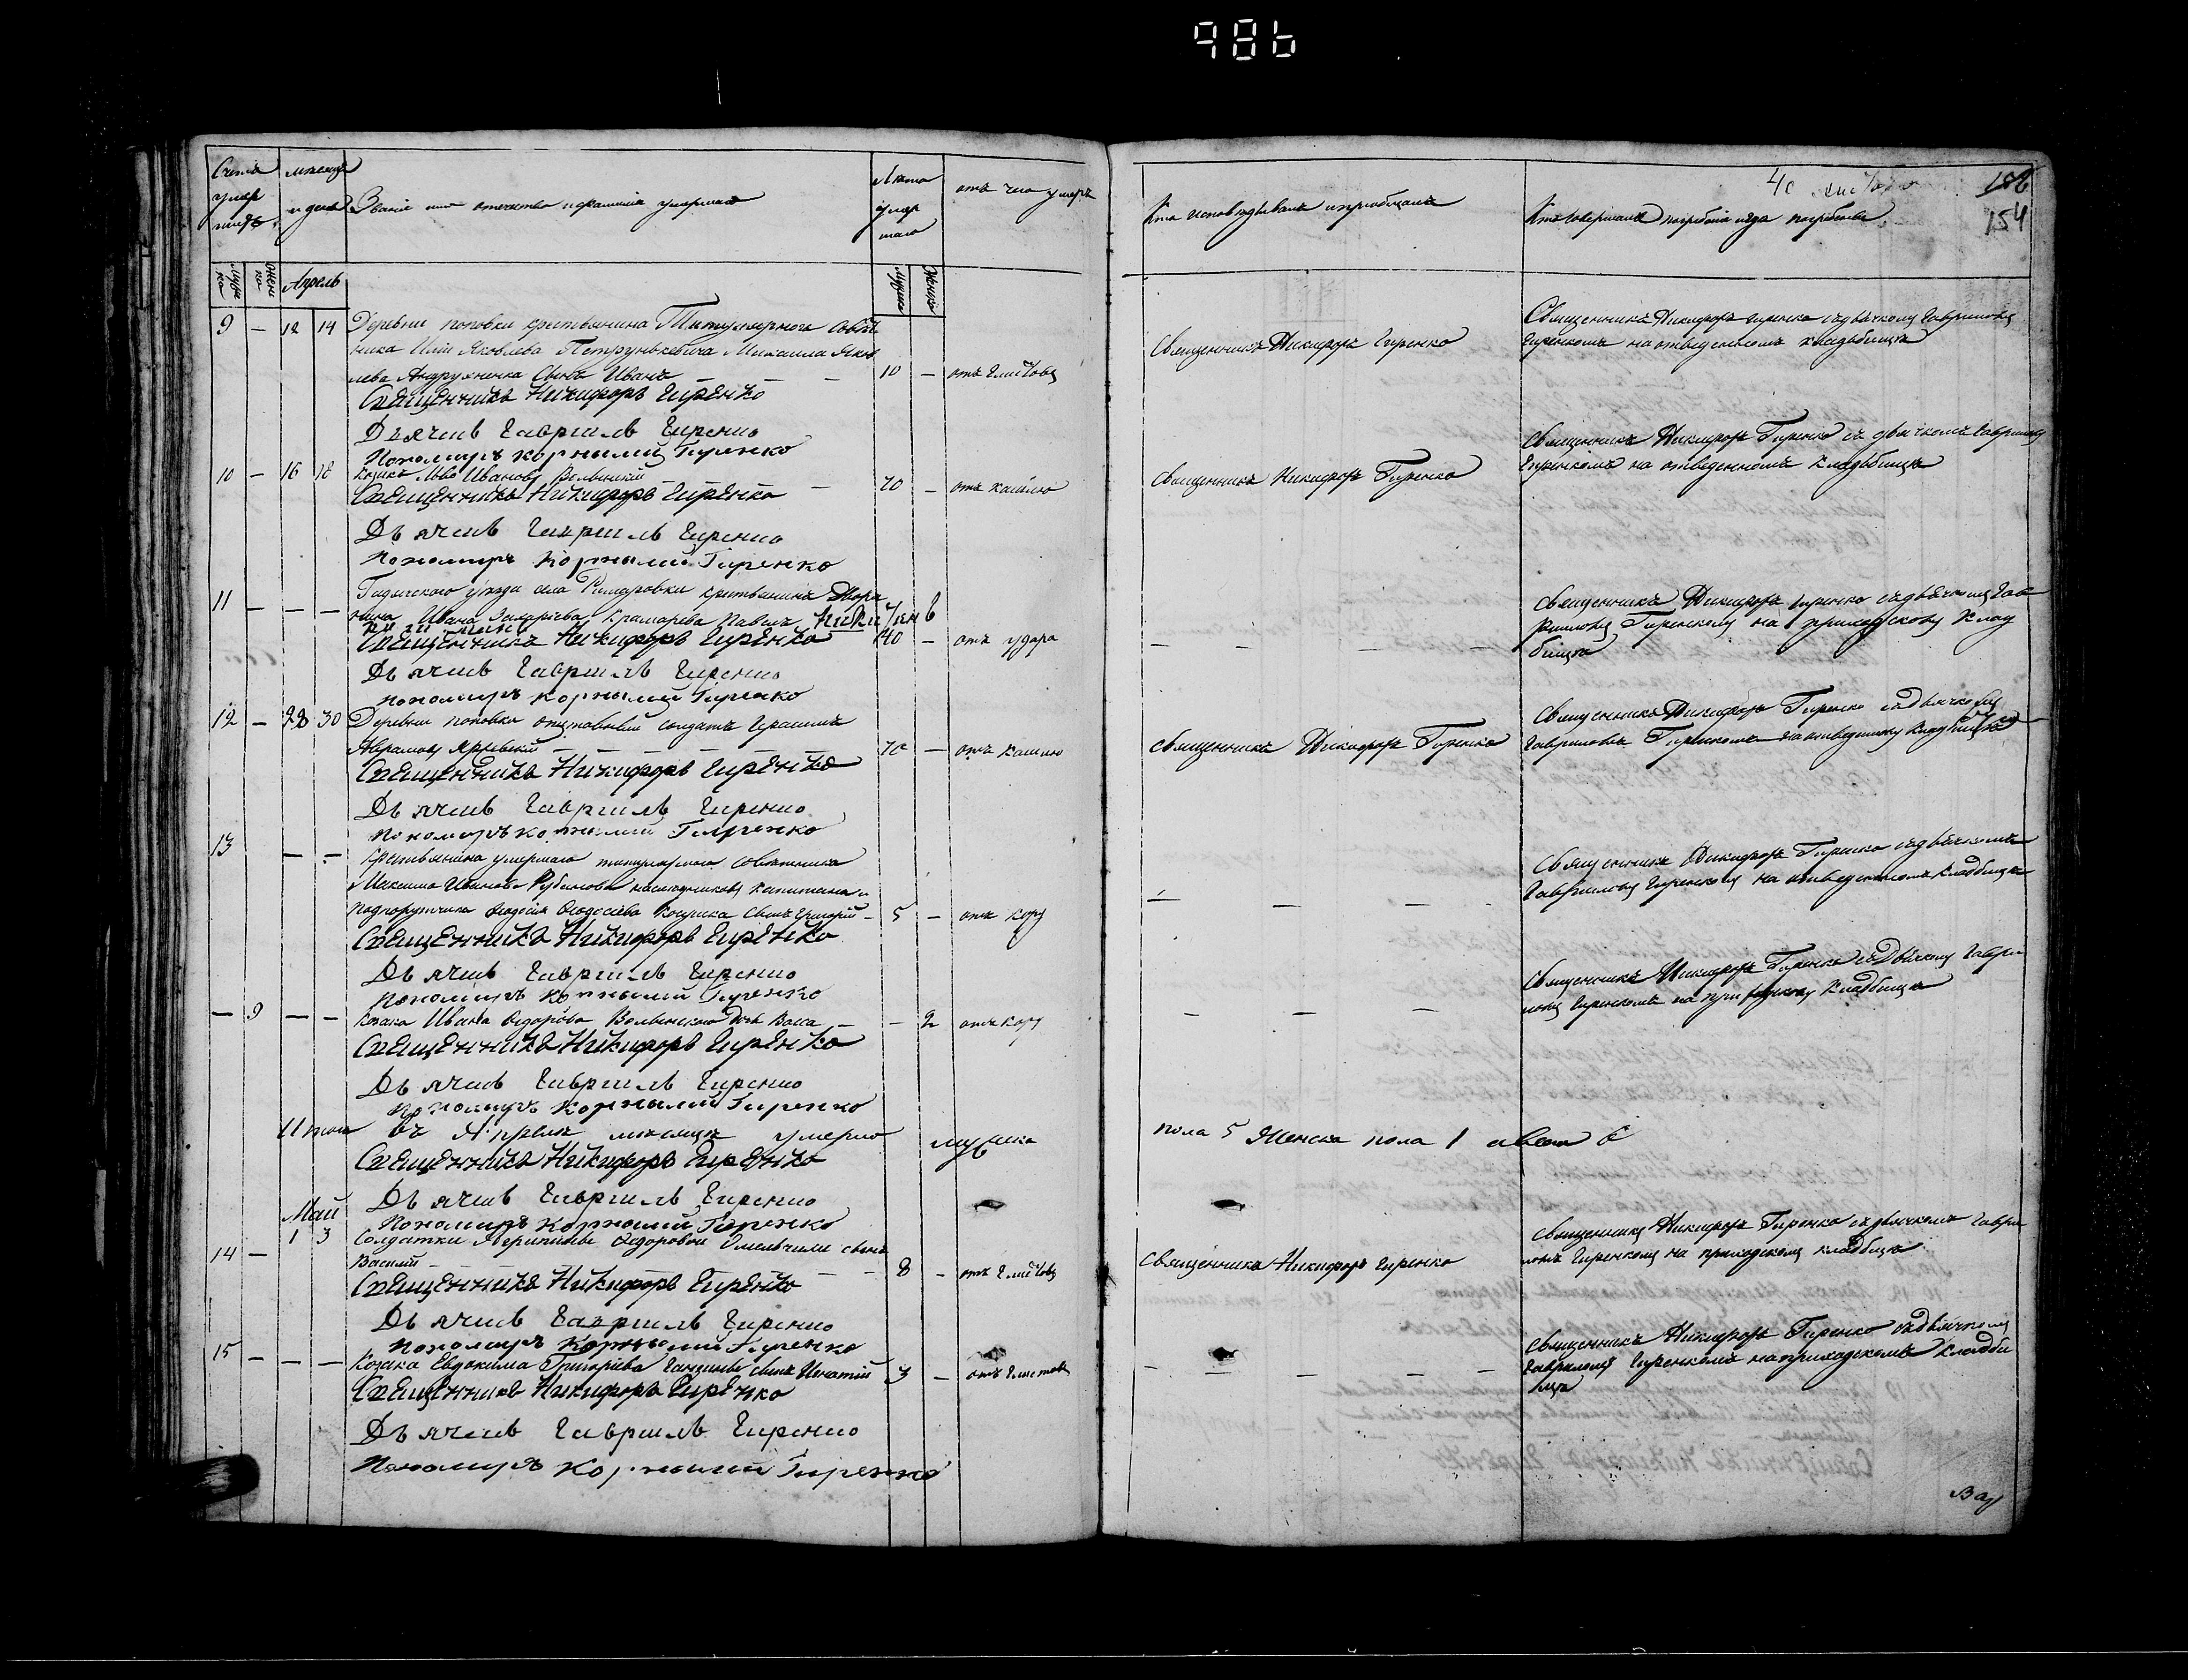 986
Счетъ умер шихъ
Мужеска
Женска
мѣсяцъ и день
Апрель
Званіе имя отечество и фамилія умершаго
Лѣта умер шаго
Мужеска
Женска
отъ чего умеръ
Кто исповѣдывалъ и пріобщалъ
Кто совершалъ погребеніе и гдѣ погребены
154
9 — 12 14 Деревни поповки крестьянина Титулярнаго Совѣт
ника Иліи Яковлева Петрункевича Михаила Яков
лева Андрущенка Сынъ Иванъ — — — 10 — отъ глистовъ
Священникъ Никифоръ Гиренко
Священникъ Никифоръ Гиренко съ дьячкомъ Гавріиломъ
Гиренкомъ на отведенномъ кладбищѣ
Священникъ Никифоръ Гиренко
Дьячекъ Гавріилъ Гиренко
Пономарь Корнилий Гиренко
10 — 16 18 Козакъ Иванов Волынскій — 70 — отъ кашлю
Священникъ Никифоръ Гиренко
Священникъ Никифоръ Гиренко съ дьячкомъ Гавріиломъ
Гиренкомъ на отведенномъ кладбищѣ
Священникъ Никифоръ Гиренко
Дьячекъ Гавріилъ Гиренко
Пономарь Корнилий Гиренко
11 — — — Гадячского уѣзда села Римаровки крестьянинъ Дворя
нина Ивана Захарьева Крамарева Павелъ Никитинъ
40 — отъ удара
— — — —
Священникъ Никифоръ Гиренко съ дьячкомъ Гав
рииломъ Гиренкомъ на приходскомъ клад
бищѣ
Священникъ Никифоръ Гиренко
Дьячекъ Гавріилъ Гиренко
Пономарь Корнилий Гиренко
12 — 28 30 Деревни поповки отставный солдатъ Герасимъ
Абрамовъ — — — 70 — отъ кашлю
Священникъ Никифоръ Гиренко
Священникъ Никифоръ Гиренко съ дьячкомъ
Гавріиломъ Гиренкомъ на отведенному кладбищѣ
Священникъ Никифоръ Гиренко
Дьячекъ Гавріилъ Гиренко
Пономарь Корнилий Гиренко
13 — — Крестьянина умершаго титулярнаго Совѣтника
Максима Иванова Рубанова наслѣдниковъ капитана и
подпоручика Федосія Федосіева сынъ Григорій — 5 — отъ кору
— — —
Священникъ Никифоръ Гиренко съ дьячкомъ
Гавріиломъ Гиренкомъ на отведенномъ кладбищѣ
Священникъ Никифоръ Гиренко
Дьячекъ Гавріилъ Гиренко
Пономарь Корнилий Гиренко
— 9 — — Козака Ивана Федорова Волынского дочь Васса — — 2 отъ кору
— — —
Священникъ Никифоръ Гиренко съ дьячкомъ Гаври
ломъ Гиренкомъ на приходскому кладбищѣ
Священникъ Никифоръ Гиренко
Дьячекъ Гавріилъ Гиренко
Пономарь Корнилий Гиренко
Итого въ Апрѣлѣ мѣсяцѣ умерло мужеска пола 5 Женска пола 1 а всего 6
Священникъ Никифоръ Гиренко
Дьячекъ Гавріилъ Гиренко
Пономарь Корнилий Гиренко
Май
14 — 1 3 Солдатки Агрипины Федоровой сынъ
Василій — — — 8 — отъ глистовъ
Священникъ Никифоръ Гиренко
Священникъ Никифоръ Гиренко съ дьячкомъ Гаври
ломъ Гиренкомъ на приходскомъ кладбищѣ
Священникъ Никифоръ Гиренко
Дьячекъ Гавріилъ Гиренко
Пономарь Корнилий Гиренко
15 — — — Козака Евдокима Григорьева сынъ Игнатій 3 — отъ глистовъ
— — — — —
Священникъ Никифоръ Гиренко съ дьячкомъ
Гавріиломъ Гиренкомъ на приходскомъ кладби
щѣ
Священникъ Никифоръ Гиренко
Дьячекъ Гавріилъ Гиренко
Пономарь Корнилий Гиренко